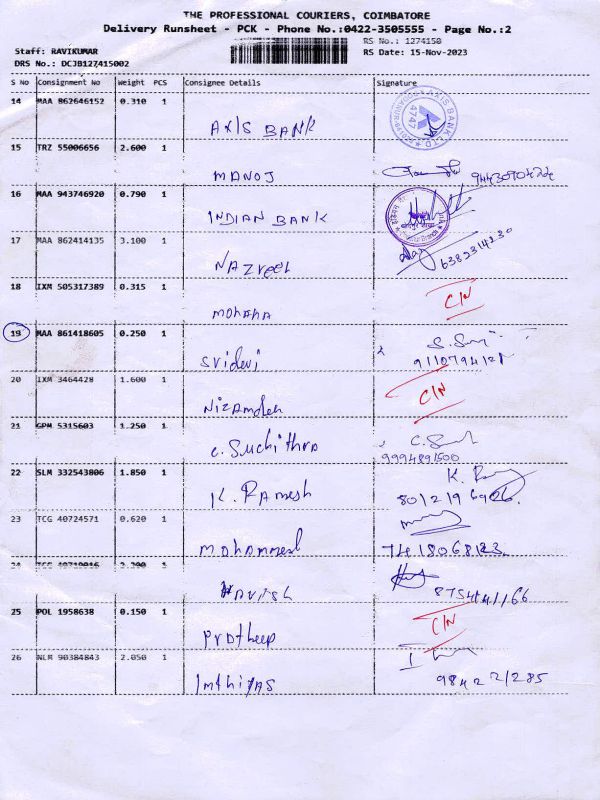 THE PROFESSIONAL COURIERS, COIMBATORE
Delivery Runsheet - PCK - Phone No.:0422-3505555 - Page No.:2
Staff: RAVIKUMAR
RS No.: 1274150
DRS No.: DCJB127415002
RS Date: 15-Nov-2023
S No Consignment No Weight PCS Consignee Details Signature
14 MAA 862646152 0.310 1
AXIS BANK
AXIS BANK LTD. 4747
15 TRZ 55006656 2.600 1
MANOJ
16 MAA 943746920 0.790 1
INDIAN BANK
17 MAA 862414135 3.100 1
Nazreel 6382314230
18 IXM 505317389 0.315 1
Mohana C/N
19 MAA 861418605 0.250 1
Sridevi
20 IXM 3464428 1.600 1
Nizamdeen C/N
21 GPM 5315603 1.250 1
C. Suchithra
9994891500
22 SLM 332543806 1.850 1
K. Ramesh
23 TCG 40724571 0.620 1
Mohammed
24 TCG 40719016 2.200 1
Harish
25 POL 1958638 0.150 1
Pratheep C/N
26 NLM 90384843 2.050 1
Imthiyas 984221285